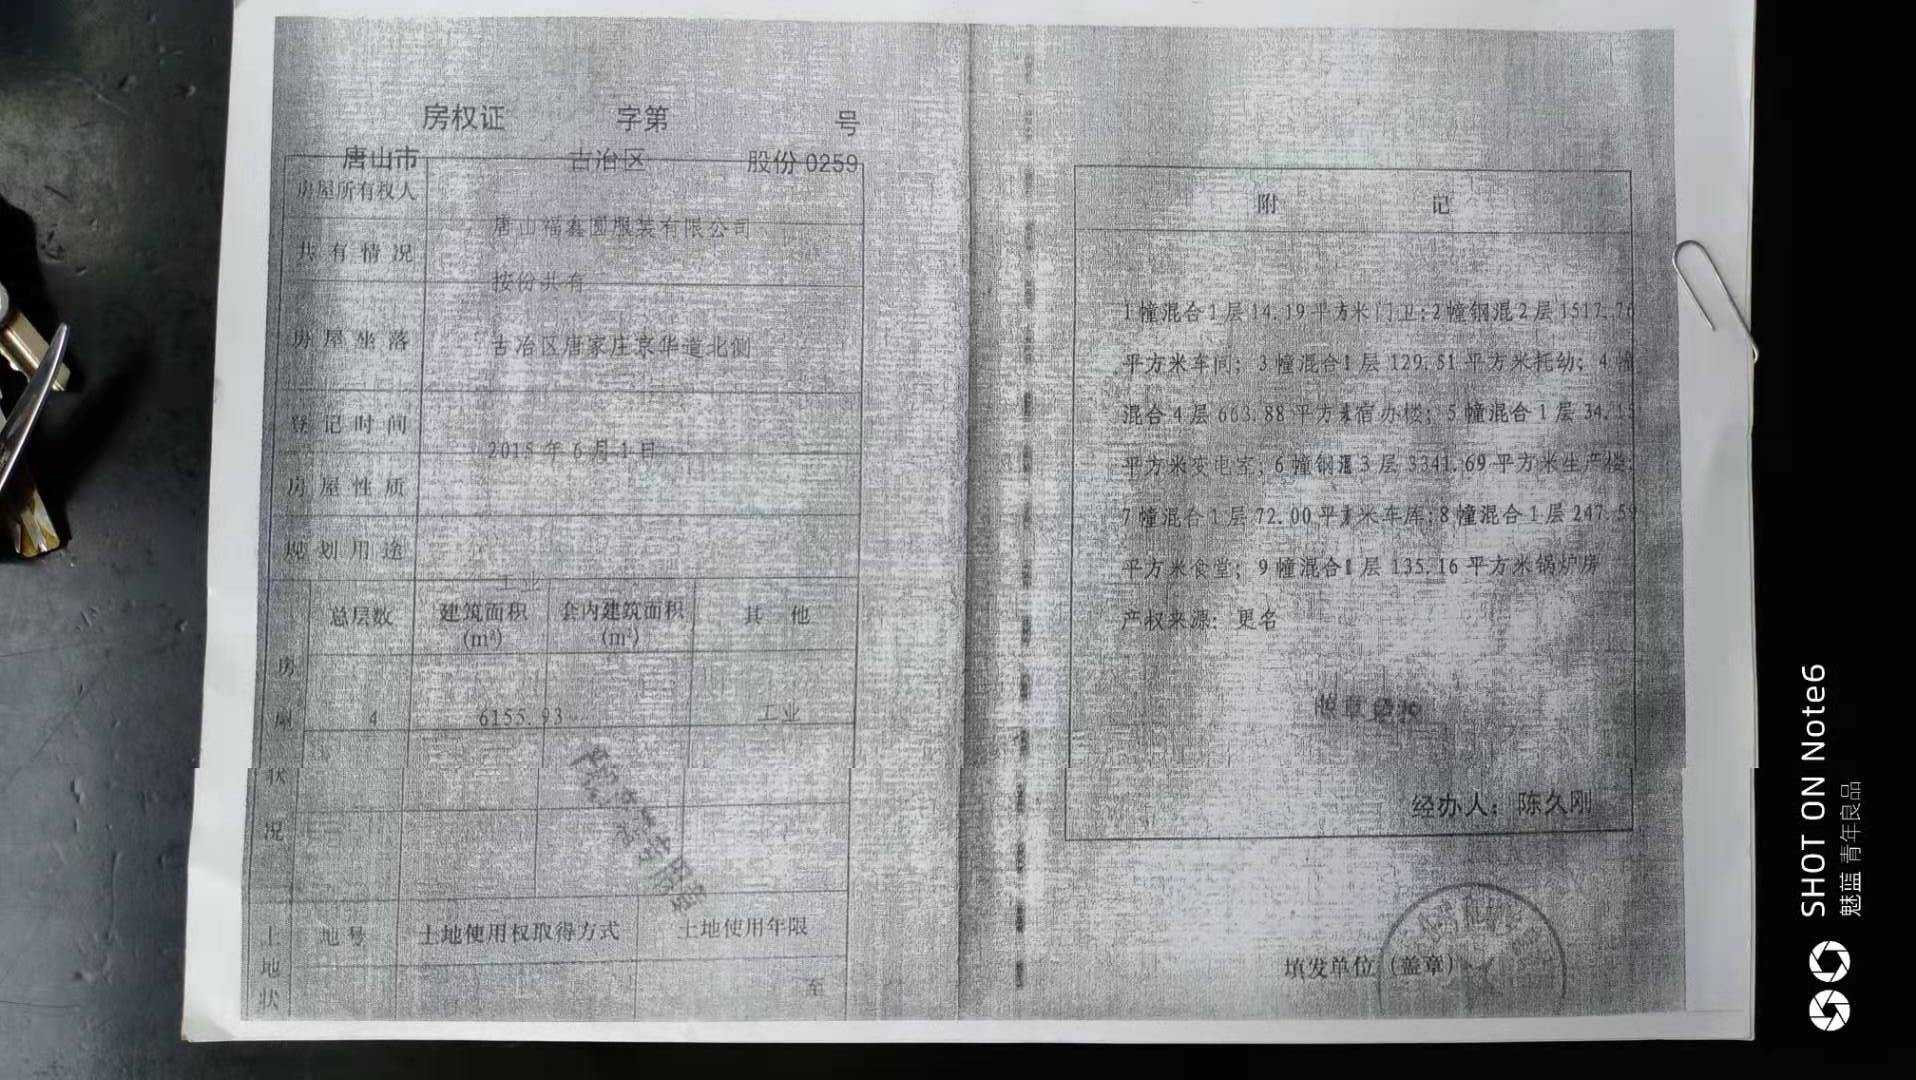 房权证 字第 号
唐山市 古冶区 股份 0259
房屋所有权人
唐山福鑫圆服装有限公司
共有情况
按份共有
房屋坐落
古冶区唐家庄京华道北侧
登记时间
2015年6月1日
房屋性质
规划用途
工业
房屋状况
总层数 建筑面积(m²) 套内建筑面积(m²) 其 他
4 6155.93 工业
土地状
地号 土地使用权取得方式 土地使用年限
至
附 记
1幢混合1层14.19平方米门卫;2幢钢混2层1517.76
平方米车间; 3幢混合1层 129.51平方米托幼; 4幢
混合4层663.88平方米宿办楼; 5幢混合1层34.15
平方米变电室; 6幢钢混3层3341.69平方米生产楼;
7幢混合1层72.00平方米车库;8幢混合1层247.59
平方米食堂; 9幢混合1层135.16平方米锅炉房
产权来源: 更名
经办人: 陈久刚
填发单位(盖章)
SHOT ON Note6
魅蓝 青年良品